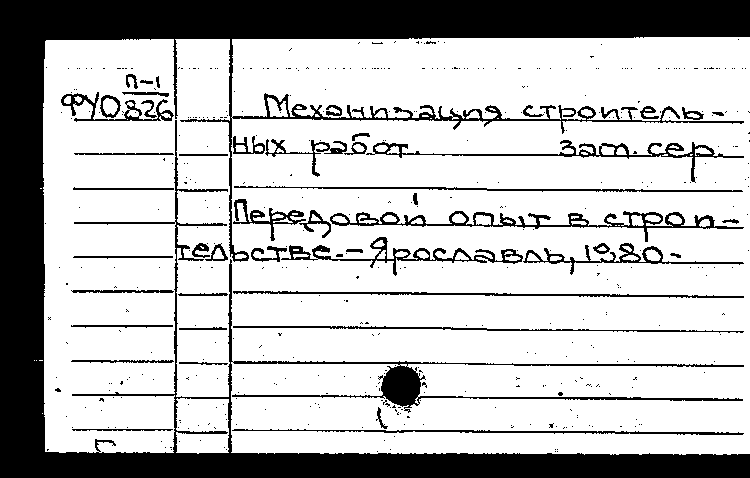 П-1
ФУО826
Механизация строитель-
ных работ. Заг. сер.
Передовой опыт в строи-
тельстве.-Ярославль, 1980-